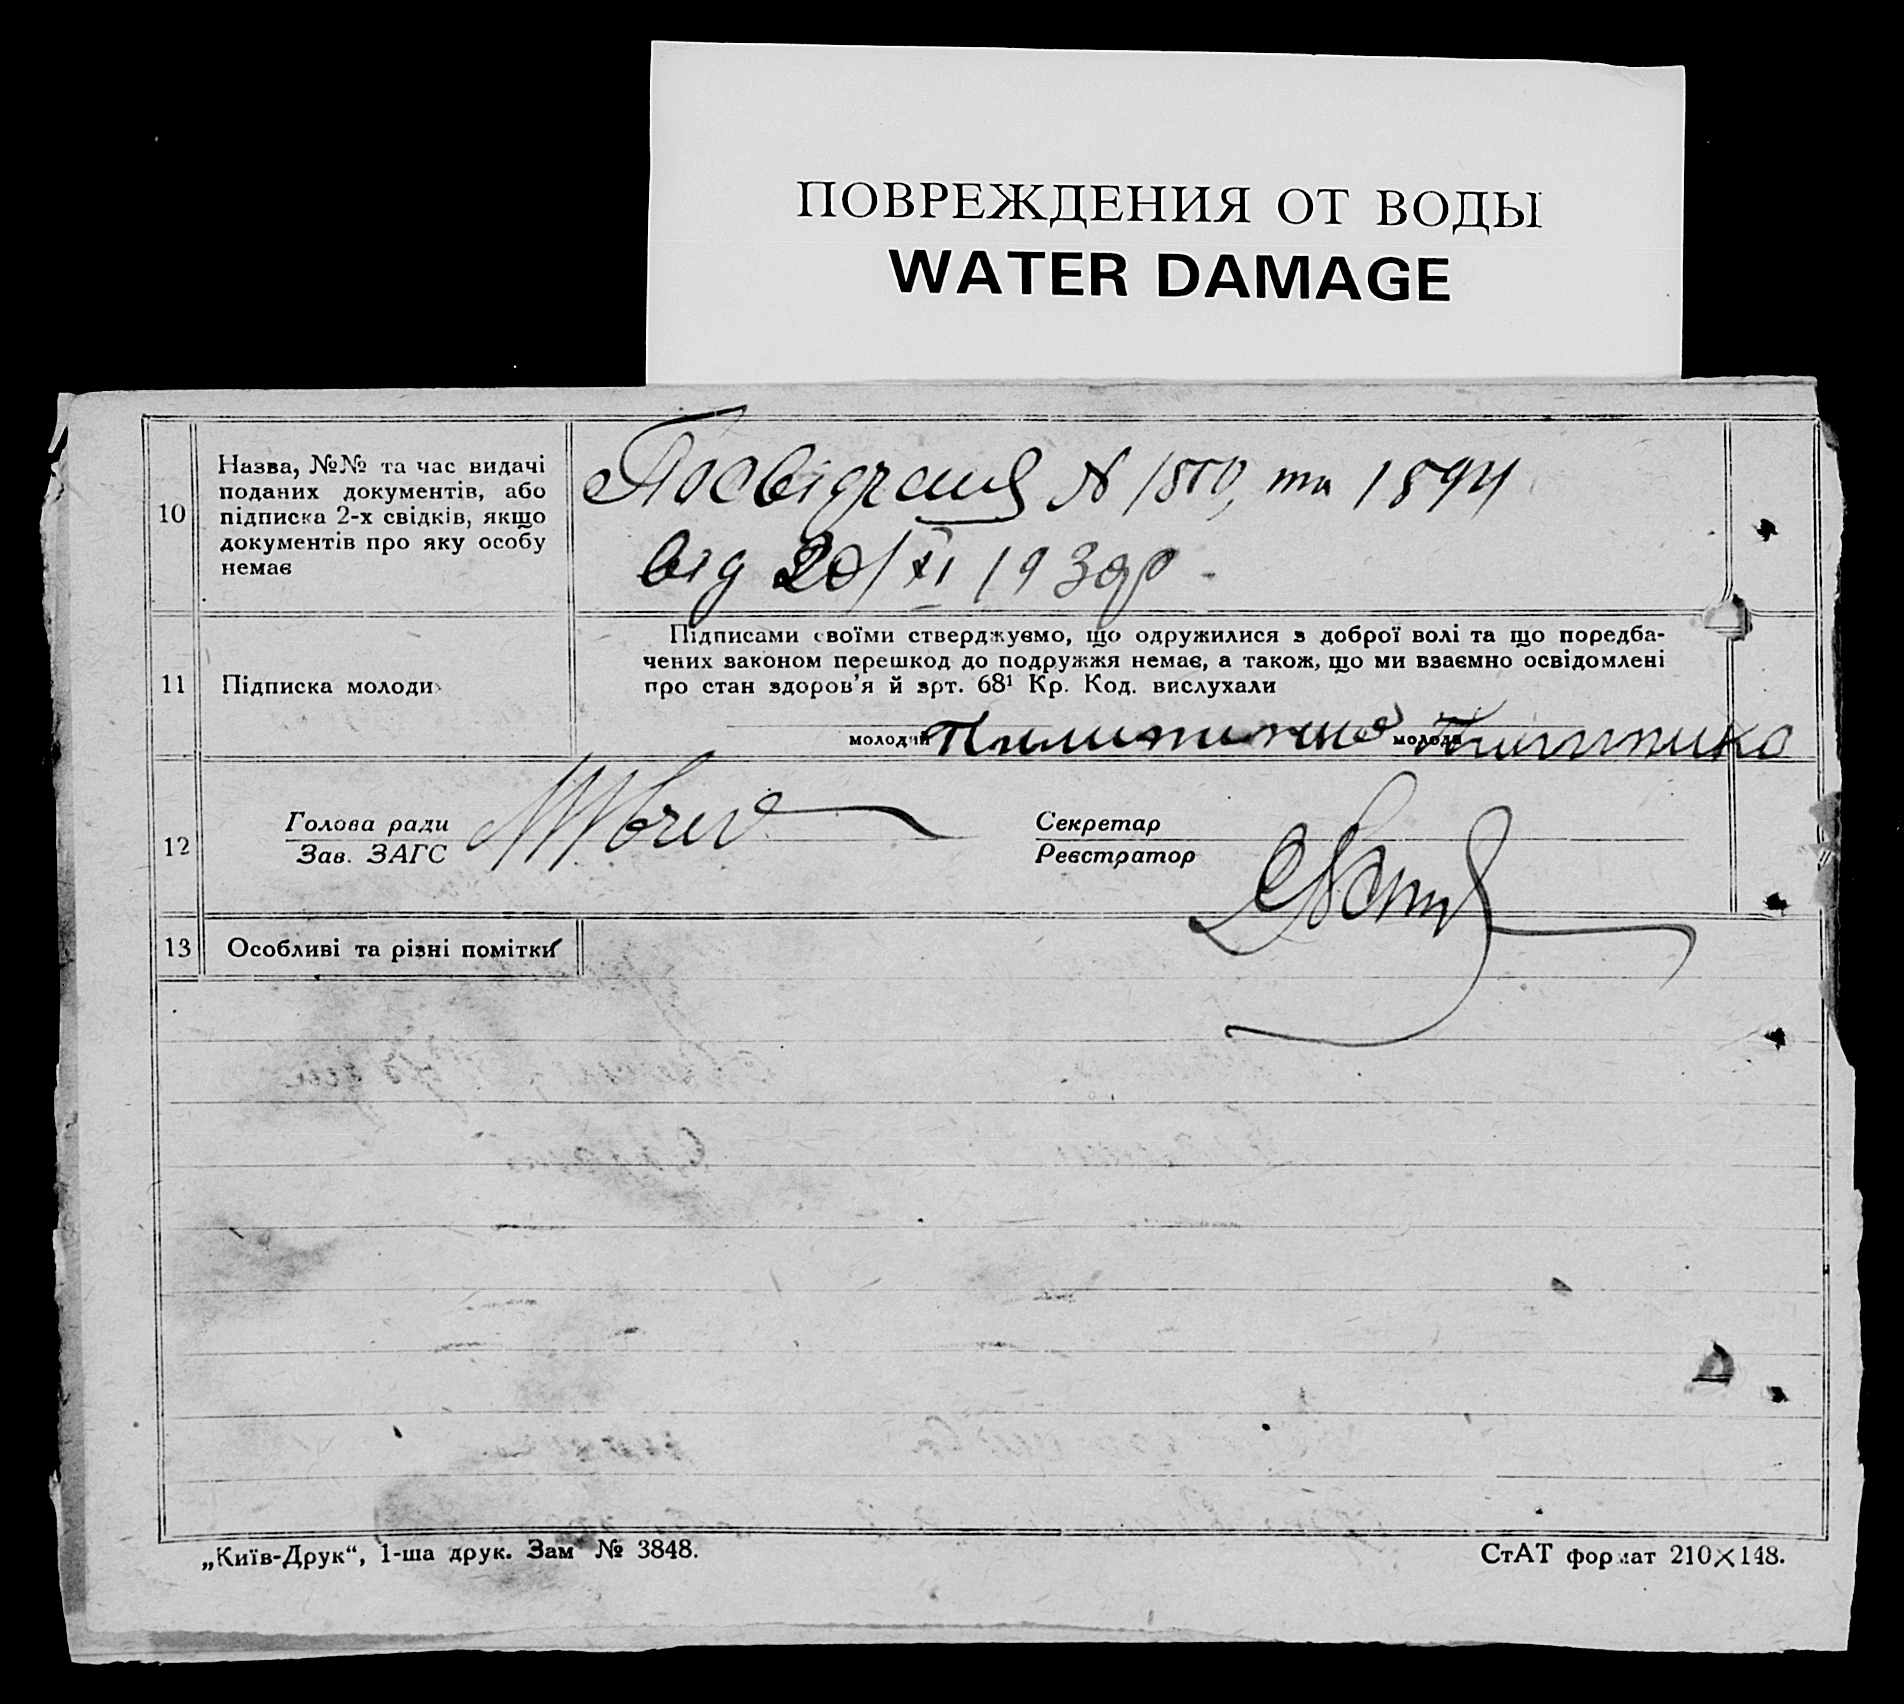 ПОВРЕЖДЕНИЯ ОТ ВОДЫ
WATER DAMAGE
10
Назва, №№ та час видачі
поданих документів, або
підписка 2-х свідків, якщо
документів про яку особу
немає
Посвідчення N та
від 20/XI 193
11
Підписка молоди
Підписами своїми стверджуємо, що одружилися з доброї волі та що поредба-
чених законом перешкод до подружжя немає, а також, що ми взаємно освідомлені
про стан здоров’я й арт. 68¹ Кр. Код. вислухали
молодий
молода
12
Голова ради
Зав. ЗАГС
Секретар
Реєстратор
13
Особливі та різні помітки
„Київ-Друк“, 1-ша друк. Зам № 3848.
СтАТ формат 210×148.